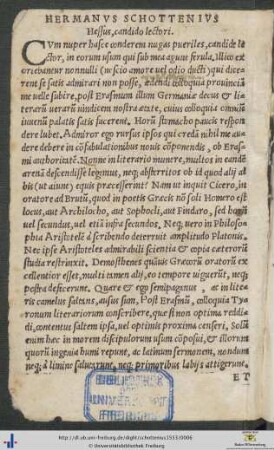 HERMANVS SCHOTTENIVS
Hessus, candido lectori.
CVm nuper hasce conderem nugas pueriles, candide le
ctor, in eorum usum qui sub mea agunt ferula, illico ex
oriebantur nonnulli (nescio amore uel odio ducti) qui dice
rent se satis admirari non posse, edendi colloquia prouinciā
me uelle subire, post Erasmum illum Germaniæ decus & lit
terarū uerarū uindicem nostra ætate, cuius colloquia omniū
inuenū palatis satis facerent. Horū stomacho paucis respon
dere lubet, Admiror ego rursus ipsos qui credā nihil me au
dere debere in cōfabulationibus nouis cōponendis, ob Eras
mi authoritatē. Nonne in literario munere, multos in eandē
arenā descendisse legimus, neq; absterritos ob id quod alij al
bis (ut aiunt) equis præcesserint? Nam ut inquit Cicero, in
oratore ad Brutū, quod in poetis Græcis nō soli Homero est
locus, aut Archilocho, aut Sophocli, aut Pindaro, sed horū
uel secundus, uel etiā infra secundos. Neq; uero in Philoso
phia Aristotelē à scribendo deterruit amplitudo Platonis,
Nec ipse Aristoteles admirabili scientia & copia cæterorū
studia restrinxit. Demosthenes quāuis Græcorū oratorū ex
cellentior esset, multi tamen alij, eo tempore uiguerūt, neq;
postea defecerunt. Quare & ego semipaganus, ac in lite
ris camelus saltans, ausus sum, Post Erasmū, colloquia Ty
ronum literariorum conscribere, que si non optima reddi
di, contentus saltem ipsa, uel optimis proxima censeri, Soli
enim hec in morem discipulorum usum cōposui, & illorum
quorū ingenia humi repunt, ac latinum sermonem, nondum
neq; à limine salutarunt, neq; primoribus labijs attigerunt,
ET
UNIVERSITÄT
FREIBURG
http://dl.ub.uni-freiburg.de/diglit/schottenius1533/0006
© Universitätsbibliothek Freiburg
Baden-Württemberg